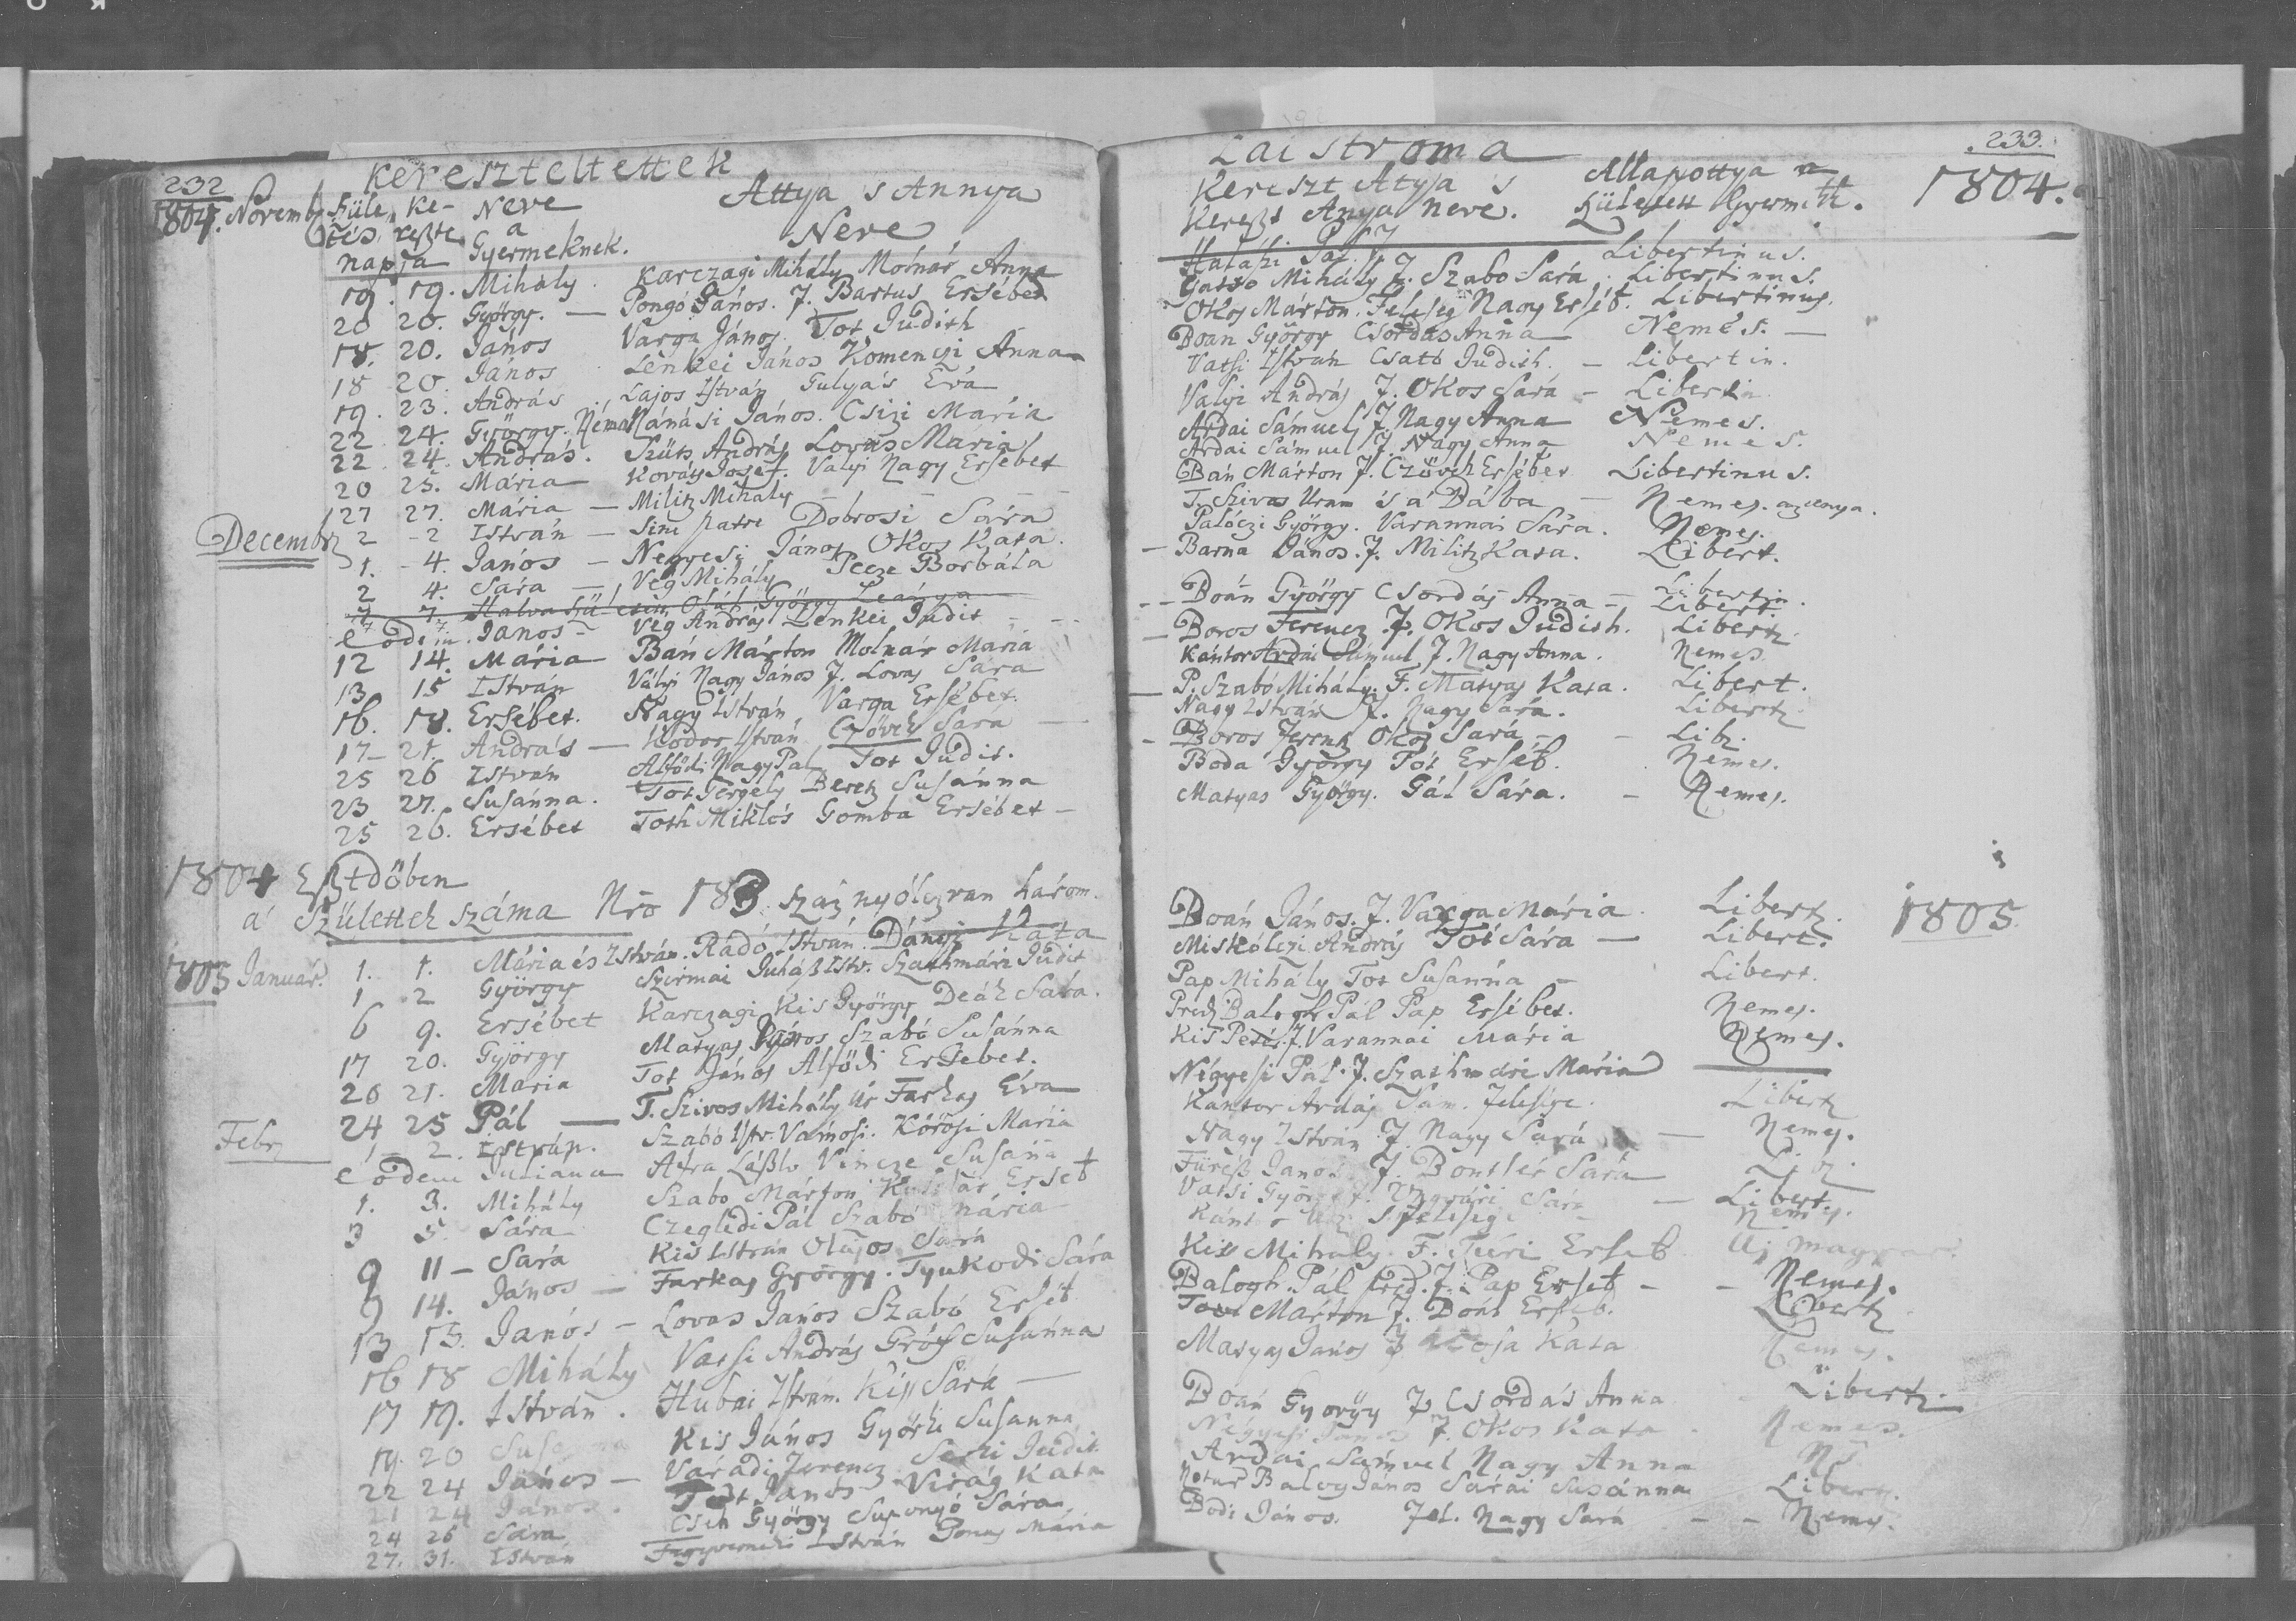 232
Kereszteltettek
1804. Novemb. Szüle ke- Neve Attya 's Annya
tés reszte a Neve
napja Gyermeknek.
19. 19. Mihály. Karczagi Mihály Molnár Anna
20 20. György. — Pongó János. J. Bartus Ersébet
18. 20. János Varga János. Tot Judith
18 20. János Lenkei János Komencsi Anna
19. 23. András Lajos István Gulyás Éva
22 24. György. Német Kánási János. Csizi Mária
22. 24. András. Szüts András Lovas Mária
20 25. Mária Kováts Joseff. Valyi Nagy Ersébet
27 27. Mária — Militz Mihály
Decembr 2 - 2 István — Sine patre Dobrosi Sára
1. - 4. János — Negyesi János Okos Kata.
2 4. Sára — Vég Mihály Pecze Borbála
7 7. Halva György Leánya
eodem. János — Vég András Lenkei Judit
12 14. Mária — Bán Márton Molnár Maria
13 15 István Vályi Nagy János J. Lovas Sára
16. 18. Ersébet. Nagy István Varga Ersébet.
17 - 21. András — Kodor István Czövek Sára —
25 26 István Alfödi Nagy Pál Tot Judit.
23 27. Susánna. Tot Gergely Beretz Susánna
25 26. Ersébet Toth Miklós Gomba Ersébet —
1804 Esztdöben
a' Születtek száma Nro 183. száz nyóltzvan három.
1805 Januar. 1. 1. Mária és István. Rádó István. Dányi Kata
1 2 György Szirmai Juhász Istv. Szathmári Judit
6 9. Ersébet Karczagi Kis György Deák Sára.
17 20. György Matyas János Szabó Susánna
20 21. Maria Tot János Alfödi Ersebet.
24 25 Pál — T. Szivos Mihály Úr Farkas Éva
Febr 1 - 2. István. Szabó Istv. Vámosi. Körösi Maria
eodem Juliana Átra László Vincze Susánn
1. 3. Mihály Szabo Márton Erséb
3 5. Sára Czeglédi Pál Szabó Mária
9 11 — Sará Kis István Olajos Sára
9 14. János — Farkas György. Tyukodi Sára
13 15. János — Lovas János Szabó Erséb
16 18 Mihály Vatsi András Gróf Susánna
17 19. István. Hubai István. Kiss Sára —
19. 20 Kis János Györki Susanna
22 24 János — Váradi Ferencz Judit
21 24 János. Tot János Virág Kata
24 26 Sara Cseh György Suponyó Sára
27. 31. István Fegyverneki István Mária
233.
Laistroma
Kereszt Atyja 's Allapottya a
Kereszt Anyja neve. Született Gyermek. 1804.
Halászi Pál J Libertinus.
Gatso Mihály J. Szabo Sará. Libertinus.
Okos Márton. Feleseg Nagy Erséb. Libertinus.
Boan György Csordás Anna Nemés. —
Vatsi István Csató Judith. — Libertin.
Valyi András J. Okos Sará — Libertin
Ardai Sámuel J. Nagy Anna Nemes.
Ardai Sámuel J. Nagy Anna Nemes.
Bán Márton J. Czövek Ersébet Libertinus.
T. Szivos Uram 's a' Bába — Nemes.
Palóczi György. Varannai Sára. Nemes.
— Barna János. J. Militz Kata. Libert.
Libertin.
-- Boán György Csordás Anna — Libert.
— Boros Ferencz J. Okos Judith. Libertz.
Kántor Ardai Sámuel J. Nagy Anna. Nemes
— P. Szabó Mihály. F. Matyas Kata. Libert.
Nagy István J. Nagy Sára. Libertz
— Boros Ferentz Okos Sará — — Libz.
Boda György Tót Erséb. Nemes.
Matyas György. Gál Sára. — Nemes.
Boán János. J. Varga Mária. Libertz. 1805
Miskólczi András Tót Sára — Libert.
Pap Mihály Tot Susánna — Libert.
Pred. Balogh Pál Pap Ersébet. Nemes.
Kis Péter. J. Varannai Mária Nemes.
Négyesi Pál. J. Szathmári Mária —
Kantor Ardaj Sam. felesége. Libertz
Nagy István J. Nagy Sará — Nemes.
Fürész Janos J. Bontsér Sará Libz.
Vatsi György J. Ungvári Sára — Libert.
Felesége Nemes.
Kiss Mihaly. F. Túri Erséb. Uj magyar.
Balogh Pál Pred. J. Pap Erséb — — Nemes.
Márton J. Boán Erséb. Libertz
Matyas János J Kata Nemes.
Boán György J. Csordás Anna Libertz.
Négyesi János J. Okos Kata. Nemes.
Ardai Sámuel Nagy Anna
Balog János Sárai Susánna Libertz.
Bodi János. Fel. Nagy Sará — — Nemes.